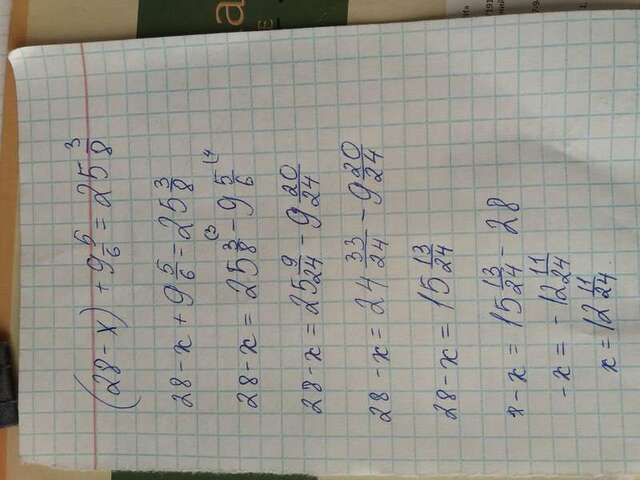 (28 - x) + 9 5/6 = 25 3/8
28 - x + 9 5/6 = 25 3/8
28 - x = 25 3/8 (3 - 9 5/6 (4
28 - x = 25 9/24 - 9 20/24
28 - x = 24 33/24 - 9 20/24
28 - x = 15 13/24
- x = 15 13/24 - 28
-x = -12 11/24
x = 12 11/24